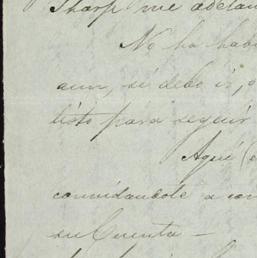 Sharp me adelan
No ha habi
aun, si debo ir, o
listo para seguir
Aquí (e
convidandole a com
su Cuenta –